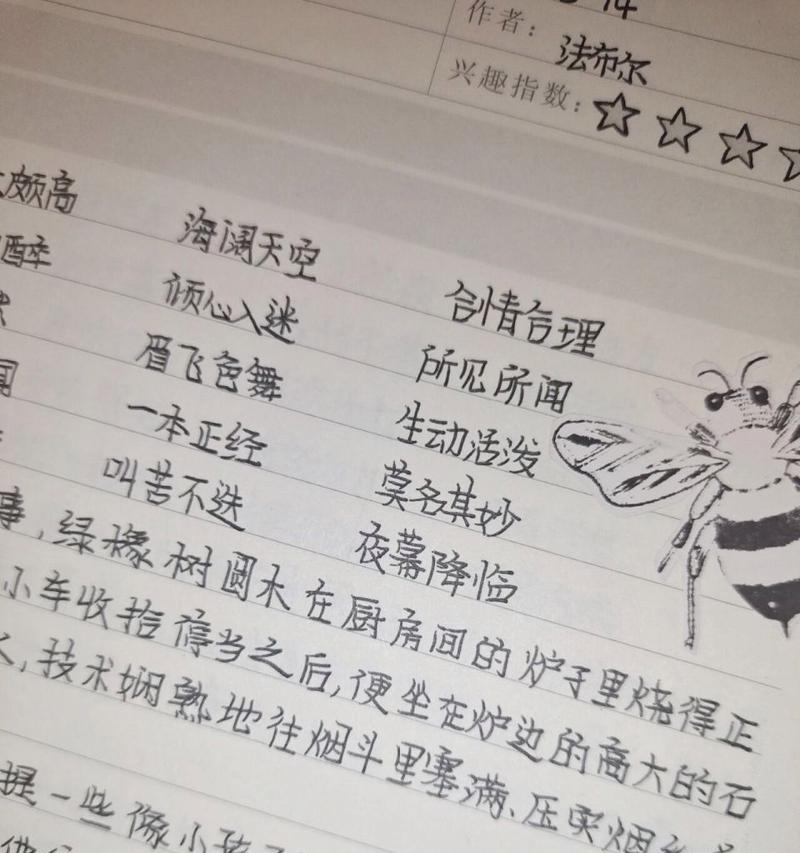 14
作者：法布尔
兴趣指数：☆☆☆
颇高 海阔天空 合情合理
醉 倾心入迷 所见所闻
眉飞色舞 生动活泼
一本正经 莫名其妙
叫苦不迭 夜幕降临
事，绿橡树圆木在厨房间的炉子里烧得正
小车收拾得当之后，便坐在炉边的高大的石
，技术娴熟地往烟斗里塞满、压实烟
提一些像小孩